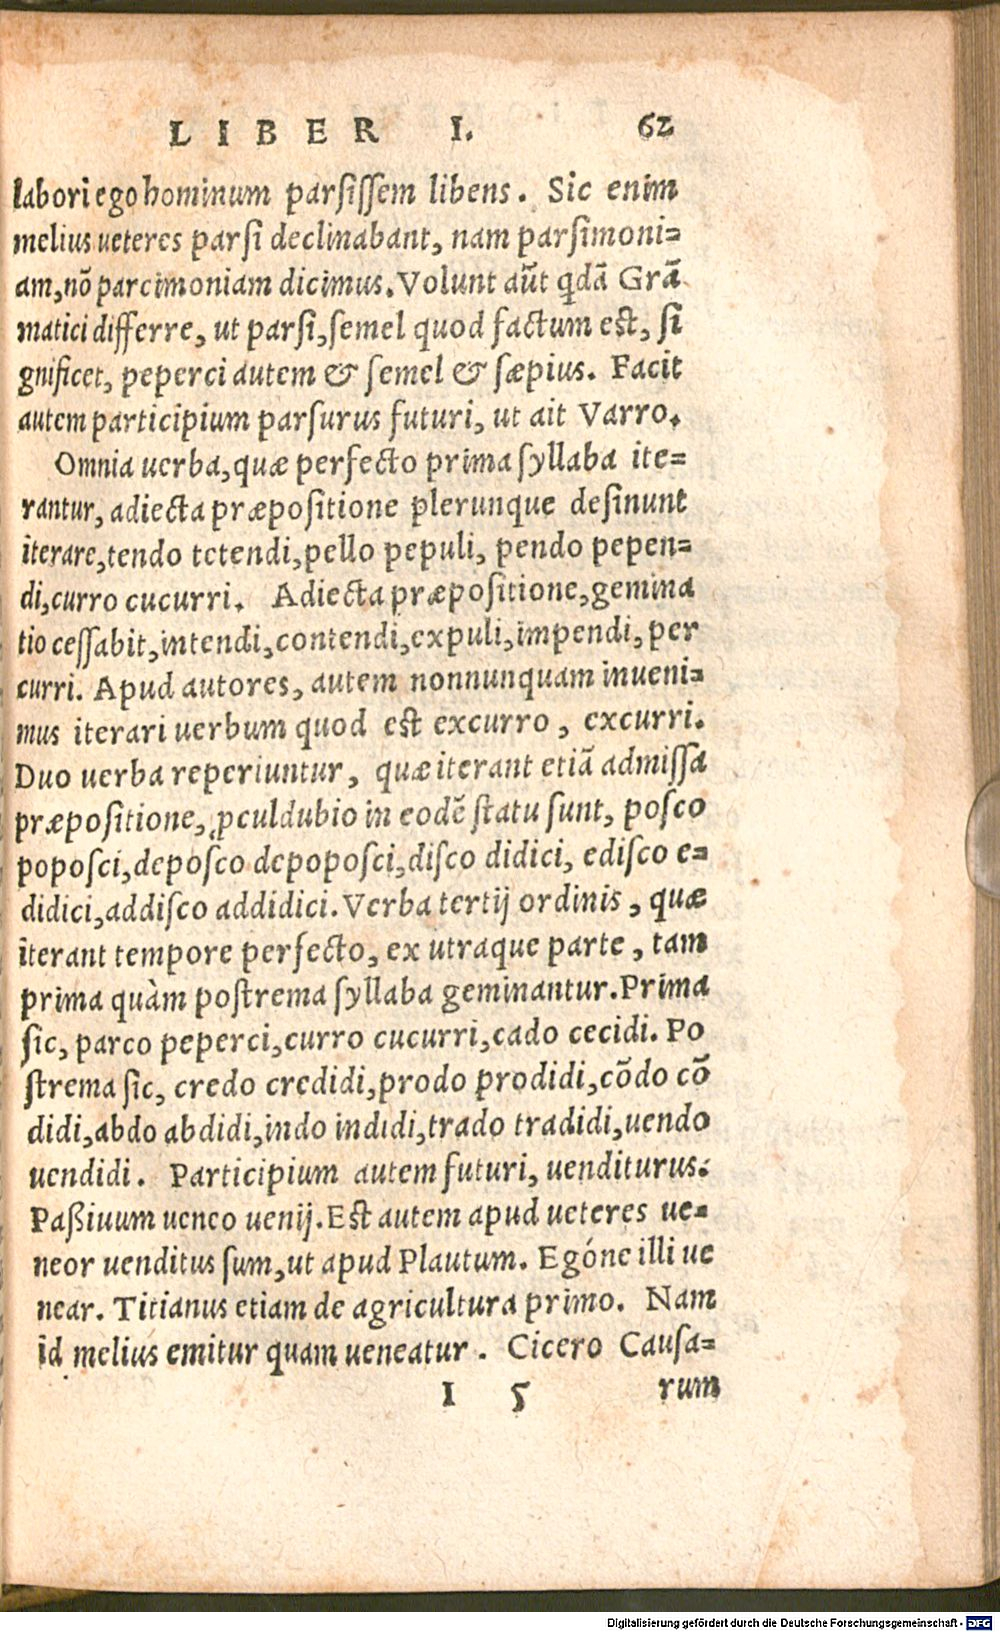 LIBER I. 62
labori ego hominum parsissem libens. Sic enim
melius ueteres parsi declinabant, nam parsimoni=
am, nō parcimoniam dicimus. Volunt aūt qdā Grā
matici differre, ut parsi, semel quod factum est, si
gnificet, peperci autem & semel & sæpius. Facit
autem participium parsurus futuri, ut ait Varro.
Omnia uerba, quæ perfecto prima syllaba ite=
rantur, adiecta præpositione plerunque desinunt
iterare, tendo tetendi, pello pepuli, pendo pepen=
di, curro cucurri. Adiecta præpositione, gemina
tio cessabit, intendi, contendi, expuli, impendi, per
curri. Apud autores, autem nonnunquam inueni=
mus iterari uerbum quod est excurro, excurri.
Duo uerba reperiuntur, quæ iterant etiā admissa
præpositione, ꝓculdubio in eodē statu sunt, posco
poposci, deposco depoposci, disco didici, edisco e=
didici, addisco addidici. Verba tertij ordinis, quæ
iterant tempore perfecto, ex utraque parte, tam
prima quàm postrema syllaba geminantur. Prima
sic, parco peperci, curro cucurri, cado cecidi. Po
strema sic, credo credidi, prodo prodidi, cōdo cō
didi, abdo abdidi, indo indidi, trado tradidi, uendo
uendidi. Participium autem futuri, uenditurus.
Paßiuum ueneo uenij. Est autem apud ueteres ue=
neor uenditus sum, ut apud Plautum. Egóne illi ue
near. Titianus etiam de agricultura primo. Nam
id melius emitur quam ueneatur. Cicero Causa=
I 5 rum
Digitalisierung gefördert durch die Deutsche Forschungsgemeinschaft - DFG